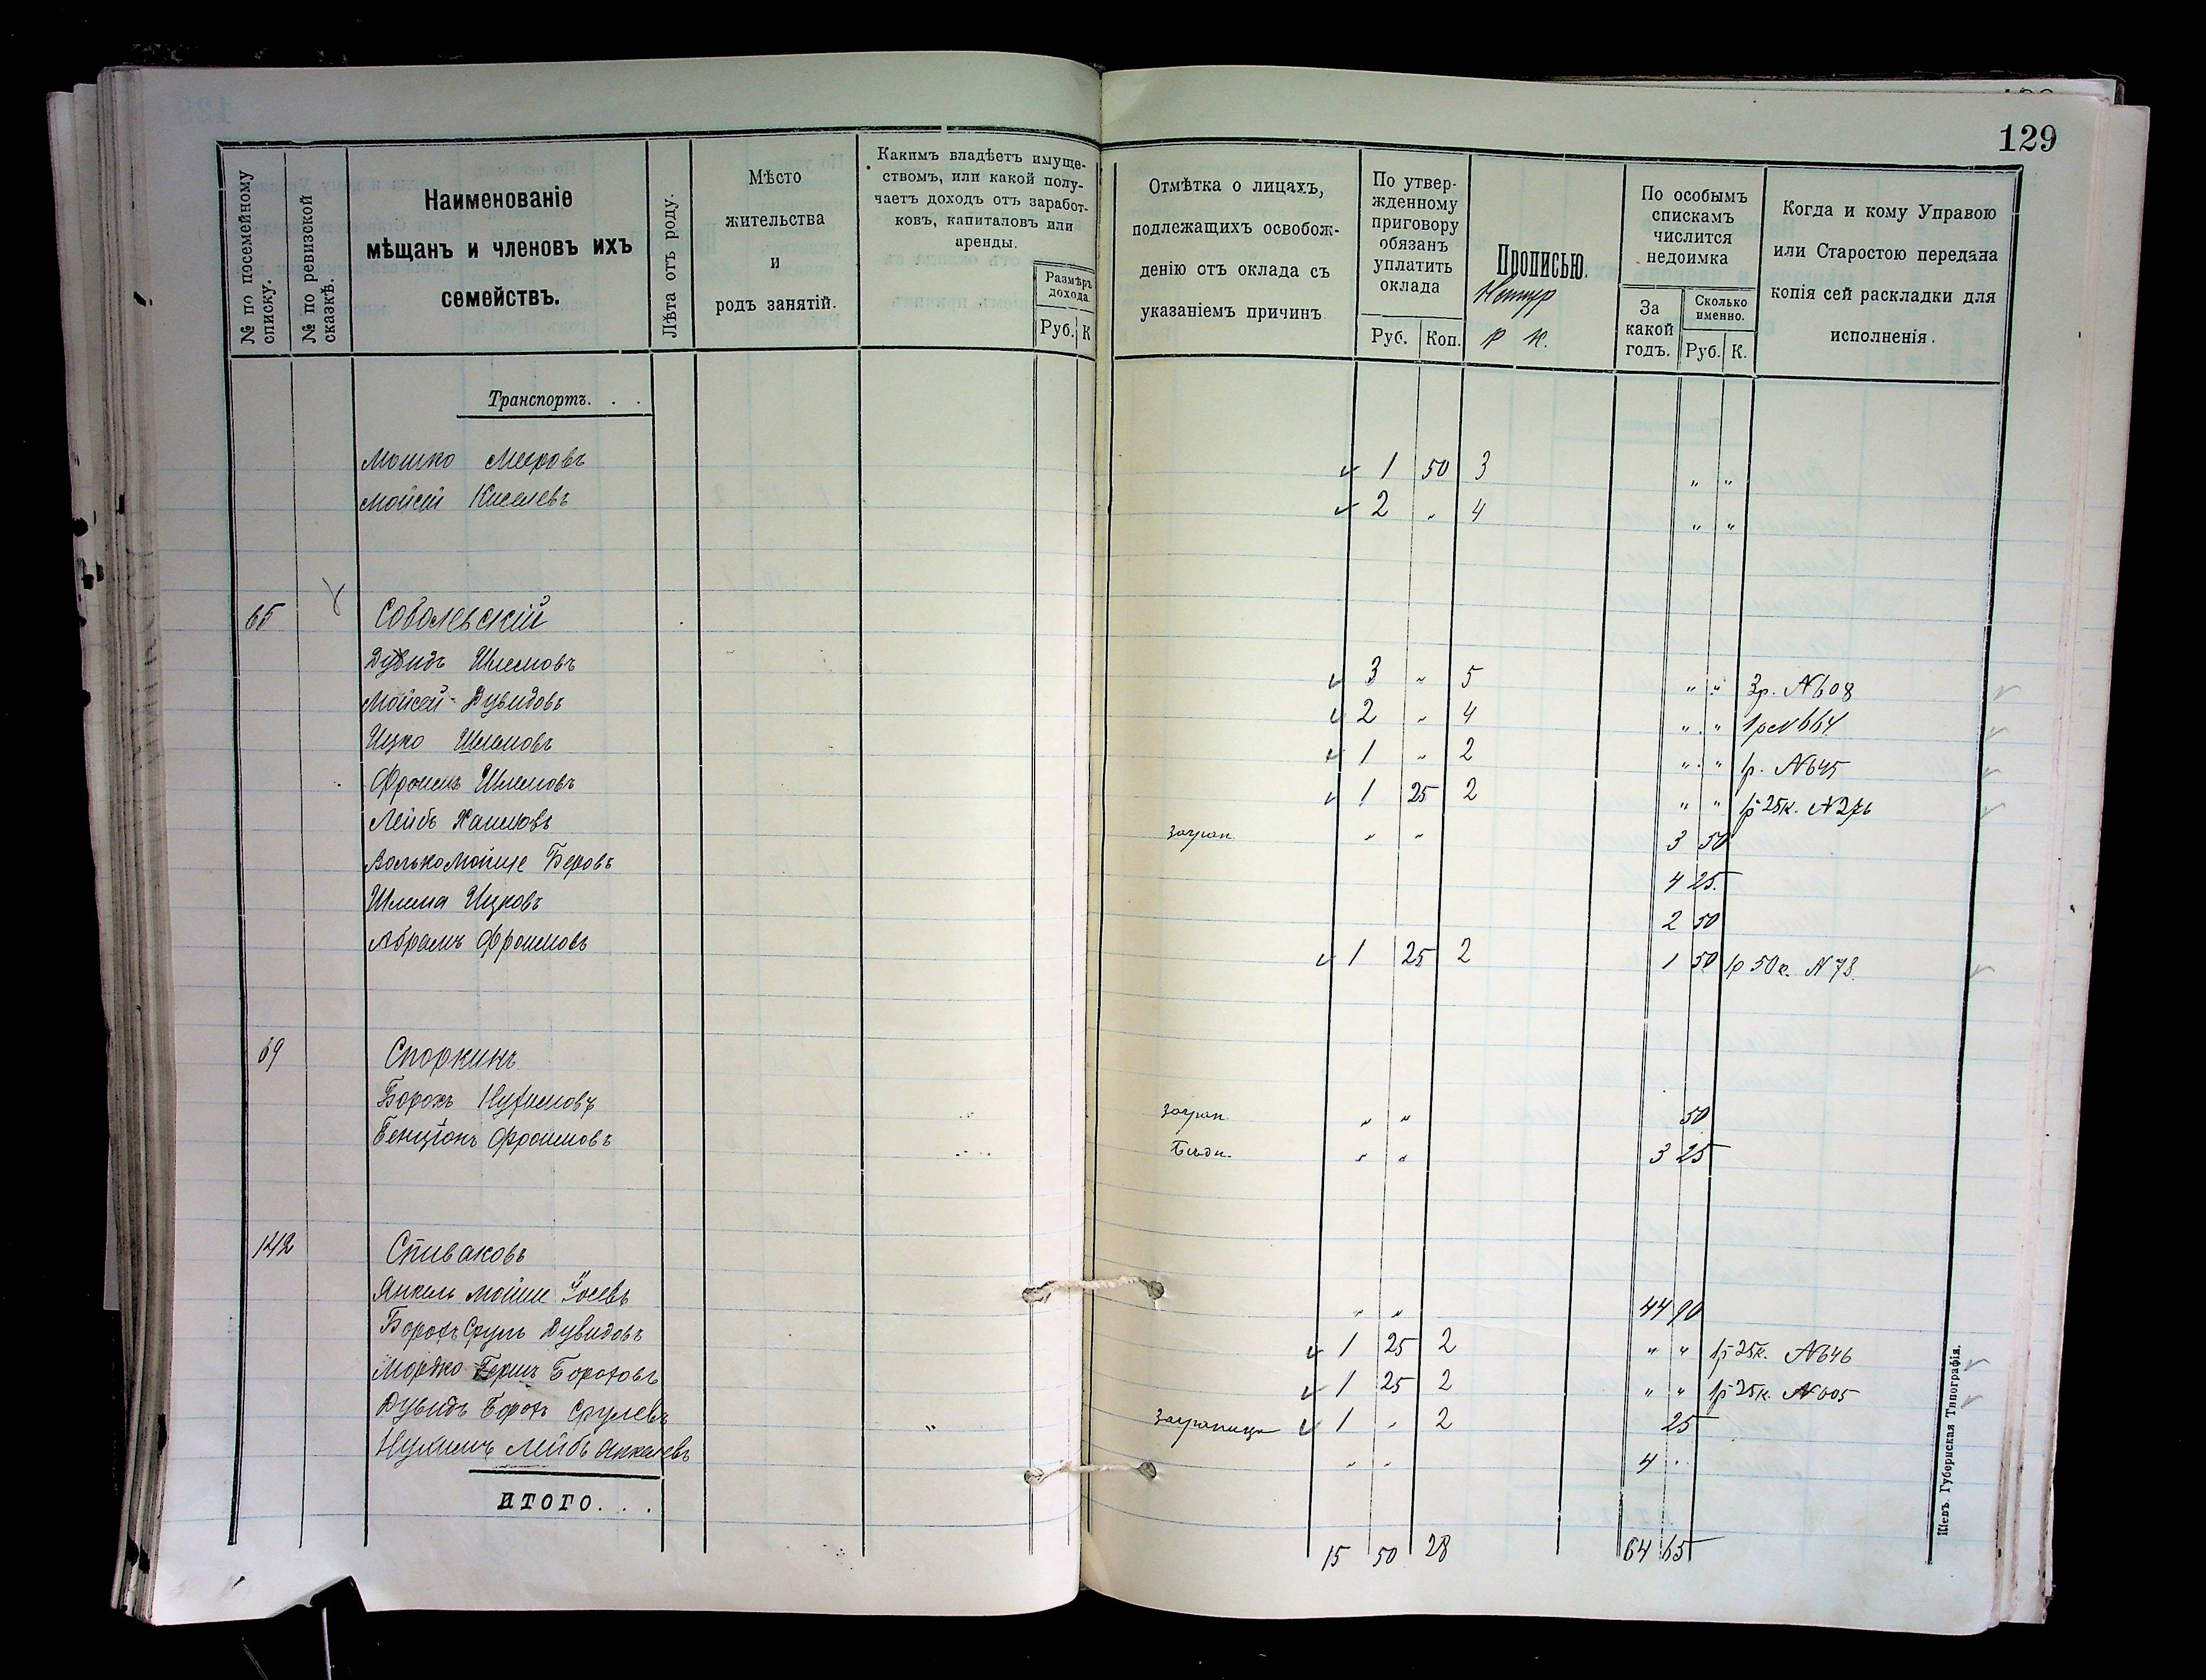 129
№ по посемейному списку.
№ по ревизской сказкѣ.
Наименованіе
мѣщанъ и членовъ ихъ
семействъ.
Лѣта отъ роду.
Мѣсто
жительства
и
родъ занятій.
Какимъ владѣетъ имуще-
ствомъ, или какой полу-
чаетъ доходъ отъ заработ-
ковъ, капиталовъ или
аренды.
Размѣръ
дохода.
Руб. К
Отмѣтка о лицахъ,
подлежащихъ освобож-
денію отъ оклада съ
указаніемъ причинъ
По утвер-
жденному
приговору
обязанъ
уплатить
оклада
Руб. Коп.
Прописью.
Р К.
По особымъ
спискамъ
числится
недоимка
За
какой
годъ.
Сколько
именно.
Руб. К.
Когда и кому Управою
или Старостою передана
копія сей раскладки для
исполненія.
Транспортъ. . .
Мошко Мееровъ 1 50 3 " "
Мойсей Киселевъ 2 " 4 " "
65 Соболевскій
Дувидъ Шлемовъ 3 " 5 " " 3р. №608
Мойсей Дувидовъ 2 " 4 " " 1р №664
Ицко Шлемовъ 1 " 2 " " 1р. №645
Фроимъ Шлемовъ 1 25 2 " " 1р 25к. №276
Лейбъ Хаимовъ загран. " " 3 50
Волько Мойше Беровъ 4 25.
Шлема Ицковъ 2 50
Абрамъ Фроимовъ 1 25 2 1 50 1р 50к. №78.
69 Споркинъ
Борохъ Нухимовъ загран " " 50
Бенціонъ Фроимовъ Бѣдн. " " 3 25
142 Спиваковъ
Янкель Мойше Іосевъ " " 44 90
Борохъ Сруль Дувидовъ 1 25 2 " " 1р 25к. №646
Мордко Герш Бороховъ 1 25 2 " " 1р 25к. №605
Дувидъ Борохъ Срулевъ " заграницу 1 " 2 25
Нухимъ Лейбъ Янкелевъ " " 4 "
ИТОГО. . .
15 50 28 64 65
Кіевъ. Губернская Типографія.